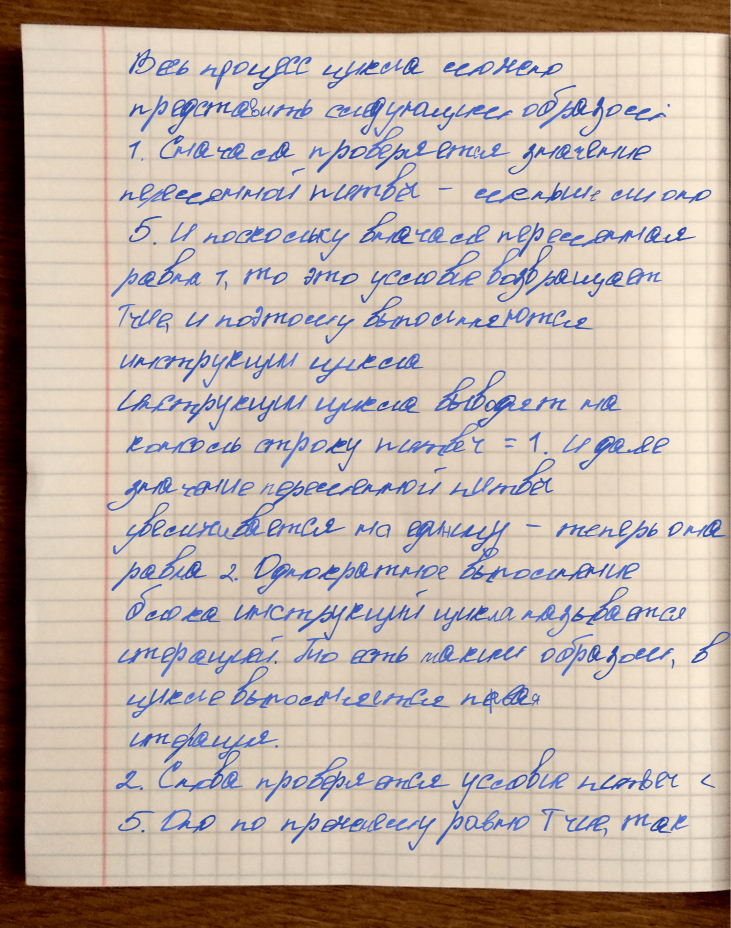 Весь процесс цикла можно
представить следующим образом
1. Сначала проверяется значение
переменной number – меньше ли оно
5. И поскольку вначале переменная
равна 1, то это условие возвращает
True, и поэтому выполняются
инструкции цикла
Инструкции цикла выводят на
консоль строку number = 1. и далее
значение переменной number
увеличивается на единицу – теперь она
равна 2. Однократное выполнение
блока инструкций цикла называется
итерацией. То есть таким образом, в
цикле выполняется первая
итерация.
2. Снова проверяется условие number <
5. Оно по прежнему равно True, так